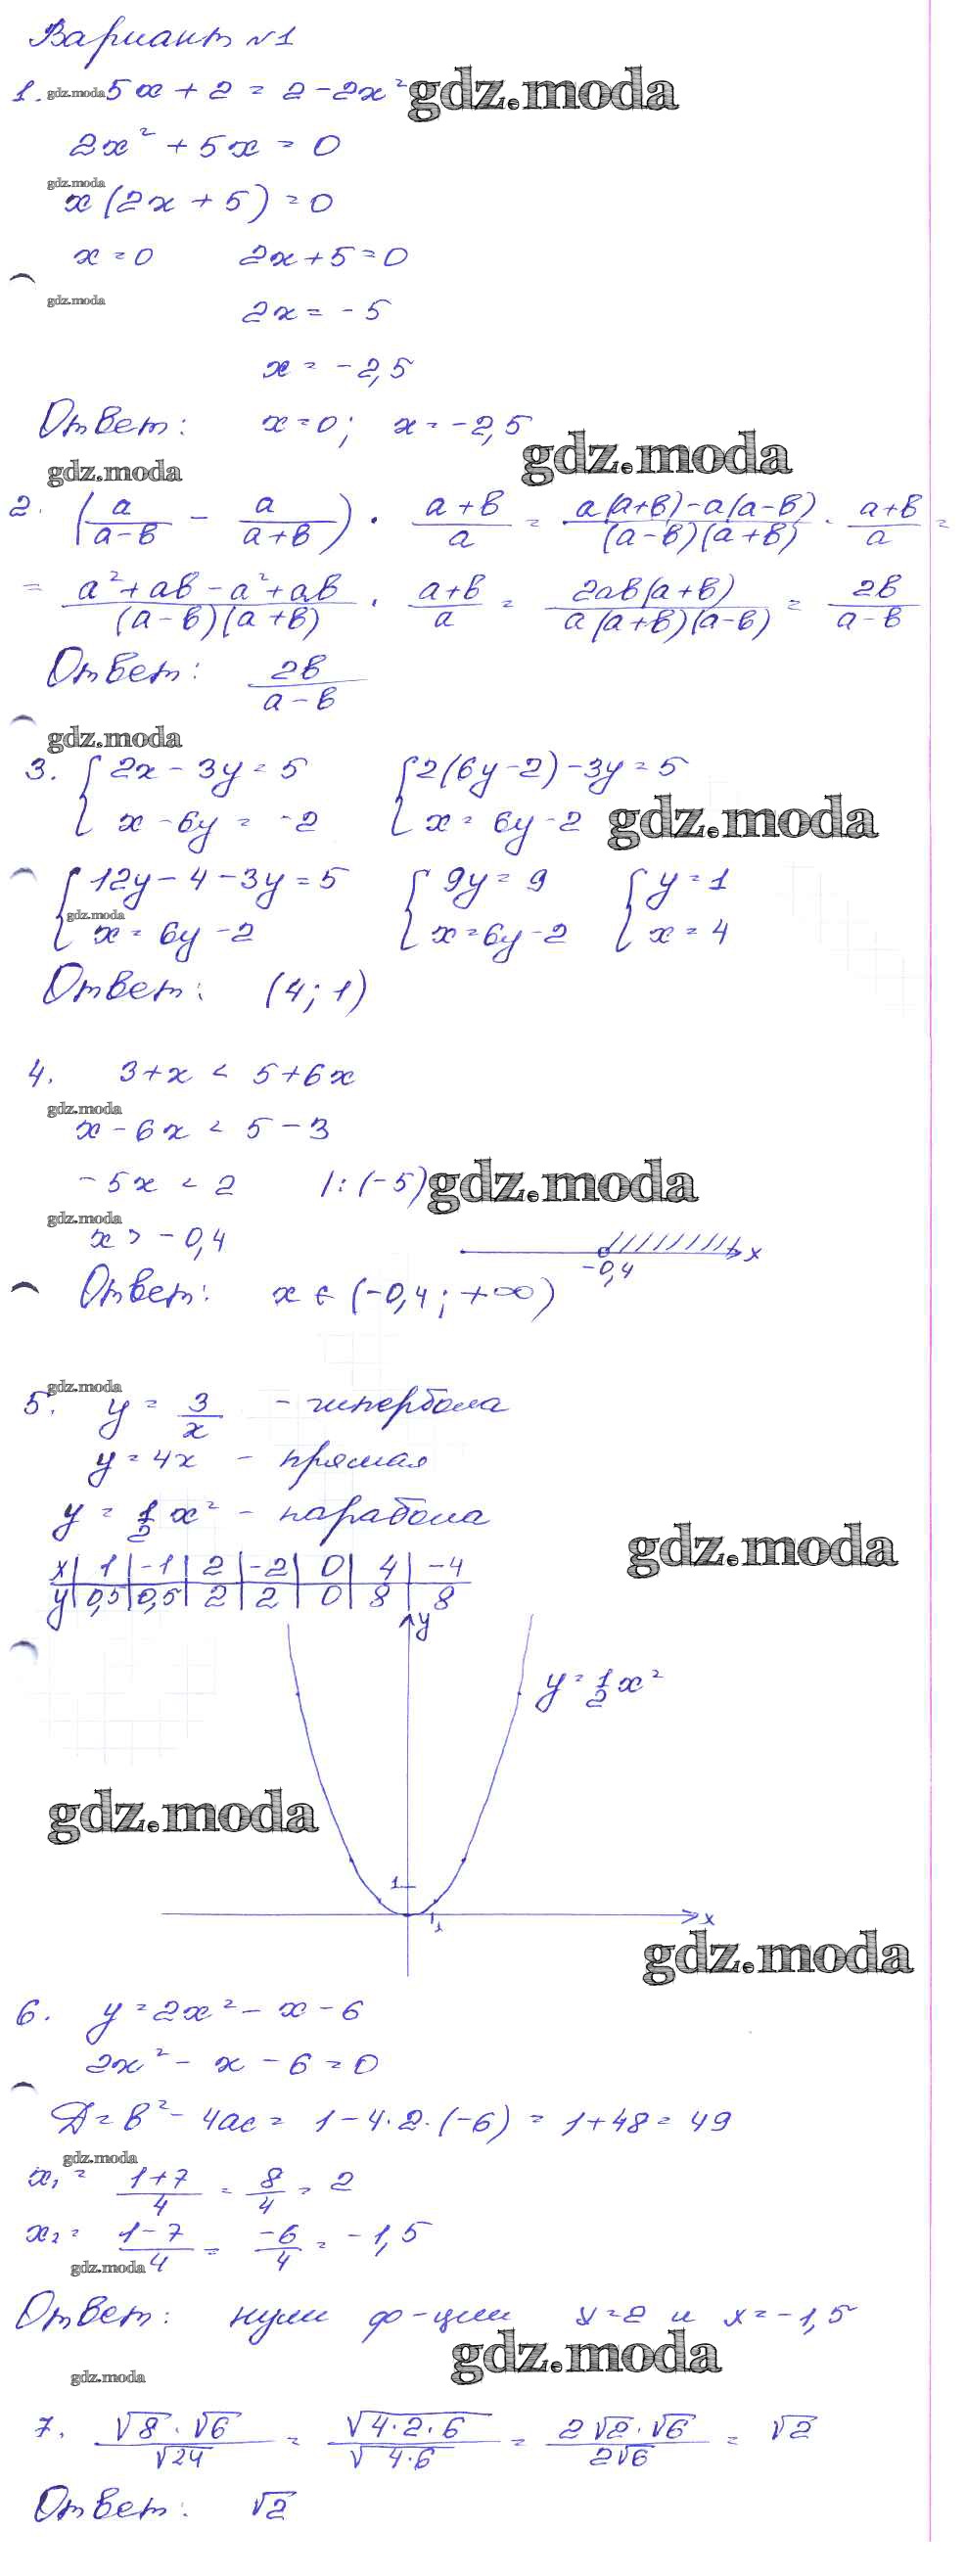 Вариант №1
1. gdz.moda 5x + 2 = 2 - 2x² gdz.moda
2x² + 5x = 0
gdz.moda
x(2x + 5) = 0
x = 0 2x + 5 = 0
gdz.moda
2x = -5
x = -2,5
Ответ: x = 0; x = -2,5
gdz.moda gdz.moda
2. (a/(a-b) - a/(a+b)) · (a+b)/a = (a(a+b)-a(a-b))/((a-b)(a+b)) · (a+b)/a =
= (a²+ab-a²+ab)/((a-b)(a+b)) · (a+b)/a = 2ab(a+b)/(a(a+b)(a-b)) = 2b/(a-b)
Ответ: 2b/(a-b)
gdz.moda
3. { 2x - 3y = 5 { 2(6y-2) - 3y = 5
x - 6y = -2 x = 6y - 2 gdz.moda
{ 12y - 4 - 3y = 5 { 9y = 9 { y = 1
gdz.moda
x = 6y - 2 x = 6y - 2 x = 4
Ответ: (4; 1)
4. 3 + x < 5 + 6x
gdz.moda
x - 6x < 5 - 3
-5x < 2 |: (-5) gdz.moda
gdz.moda
x > -0,4 x
-0,4
Ответ: x ∈ (-0,4; +∞)
gdz.moda
5. y = 3/x - гипербола
y = 4x - прямая
y = 1/2 x² - парабола
gdz.moda
x | 1 | -1 | 2 | -2 | 0 | 4 | -4
y | 0,5 | 0,5 | 2 | 2 | 0 | 8 | 8
y
y = 1/2 x²
gdz.moda
1
1 x
gdz.moda
6. y = 2x² - x - 6
2x² - x - 6 = 0
D = b² - 4ac = 1 - 4·2·(-6) = 1 + 48 = 49
gdz.moda
x₁ = (1+7)/4 = 8/4 = 2
x₂ = (1-7)/4 = -6/4 = -1,5
gdz.moda
Ответ: нули ф-ции x = 2 и x = -1,5
gdz.moda
gdz.moda
7. √8 · √6/√24 = √4·2·6/√4·6 = 2√2 · √6/2√6 = √2
Ответ: √2